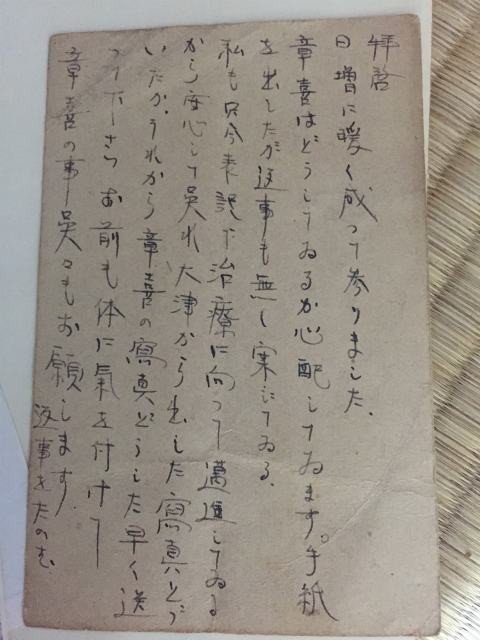 拝啓
日増に暖く成って参りました。
章喜はどうしてゐるか心配してゐます。手紙
を出したが返事も無く案じてゐる。
私も只今表記で治療に向って邁進してゐる
から安心して呉れ 大津から出した寫真とゞ
いたか、うれから章喜の寫真どうした早く送
って下さい お前も体に氣を付けて
章喜の事呉々もお願します
返事をたのむ。